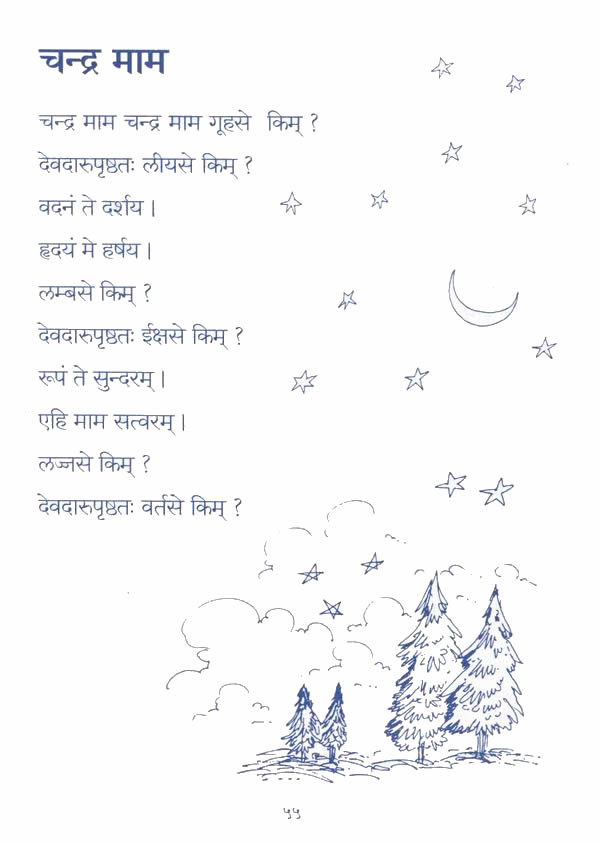 चन्द्र माम
चन्द्र माम चन्द्र माम गूहसे किम् ?
देवदारुपृष्ठतः लीयसे किम् ?
वदनं ते दर्शय ।
हृदयं मे हर्षय ।
लम्बसे किम् ?
देवदारुपृष्ठतः ईक्षसे किम् ?
रूपं ते सुन्दरम् ।
एहि माम सत्वरम् ।
लज्जसे किम् ?
देवदारुपृष्ठतः वर्तसे किम् ?
५५